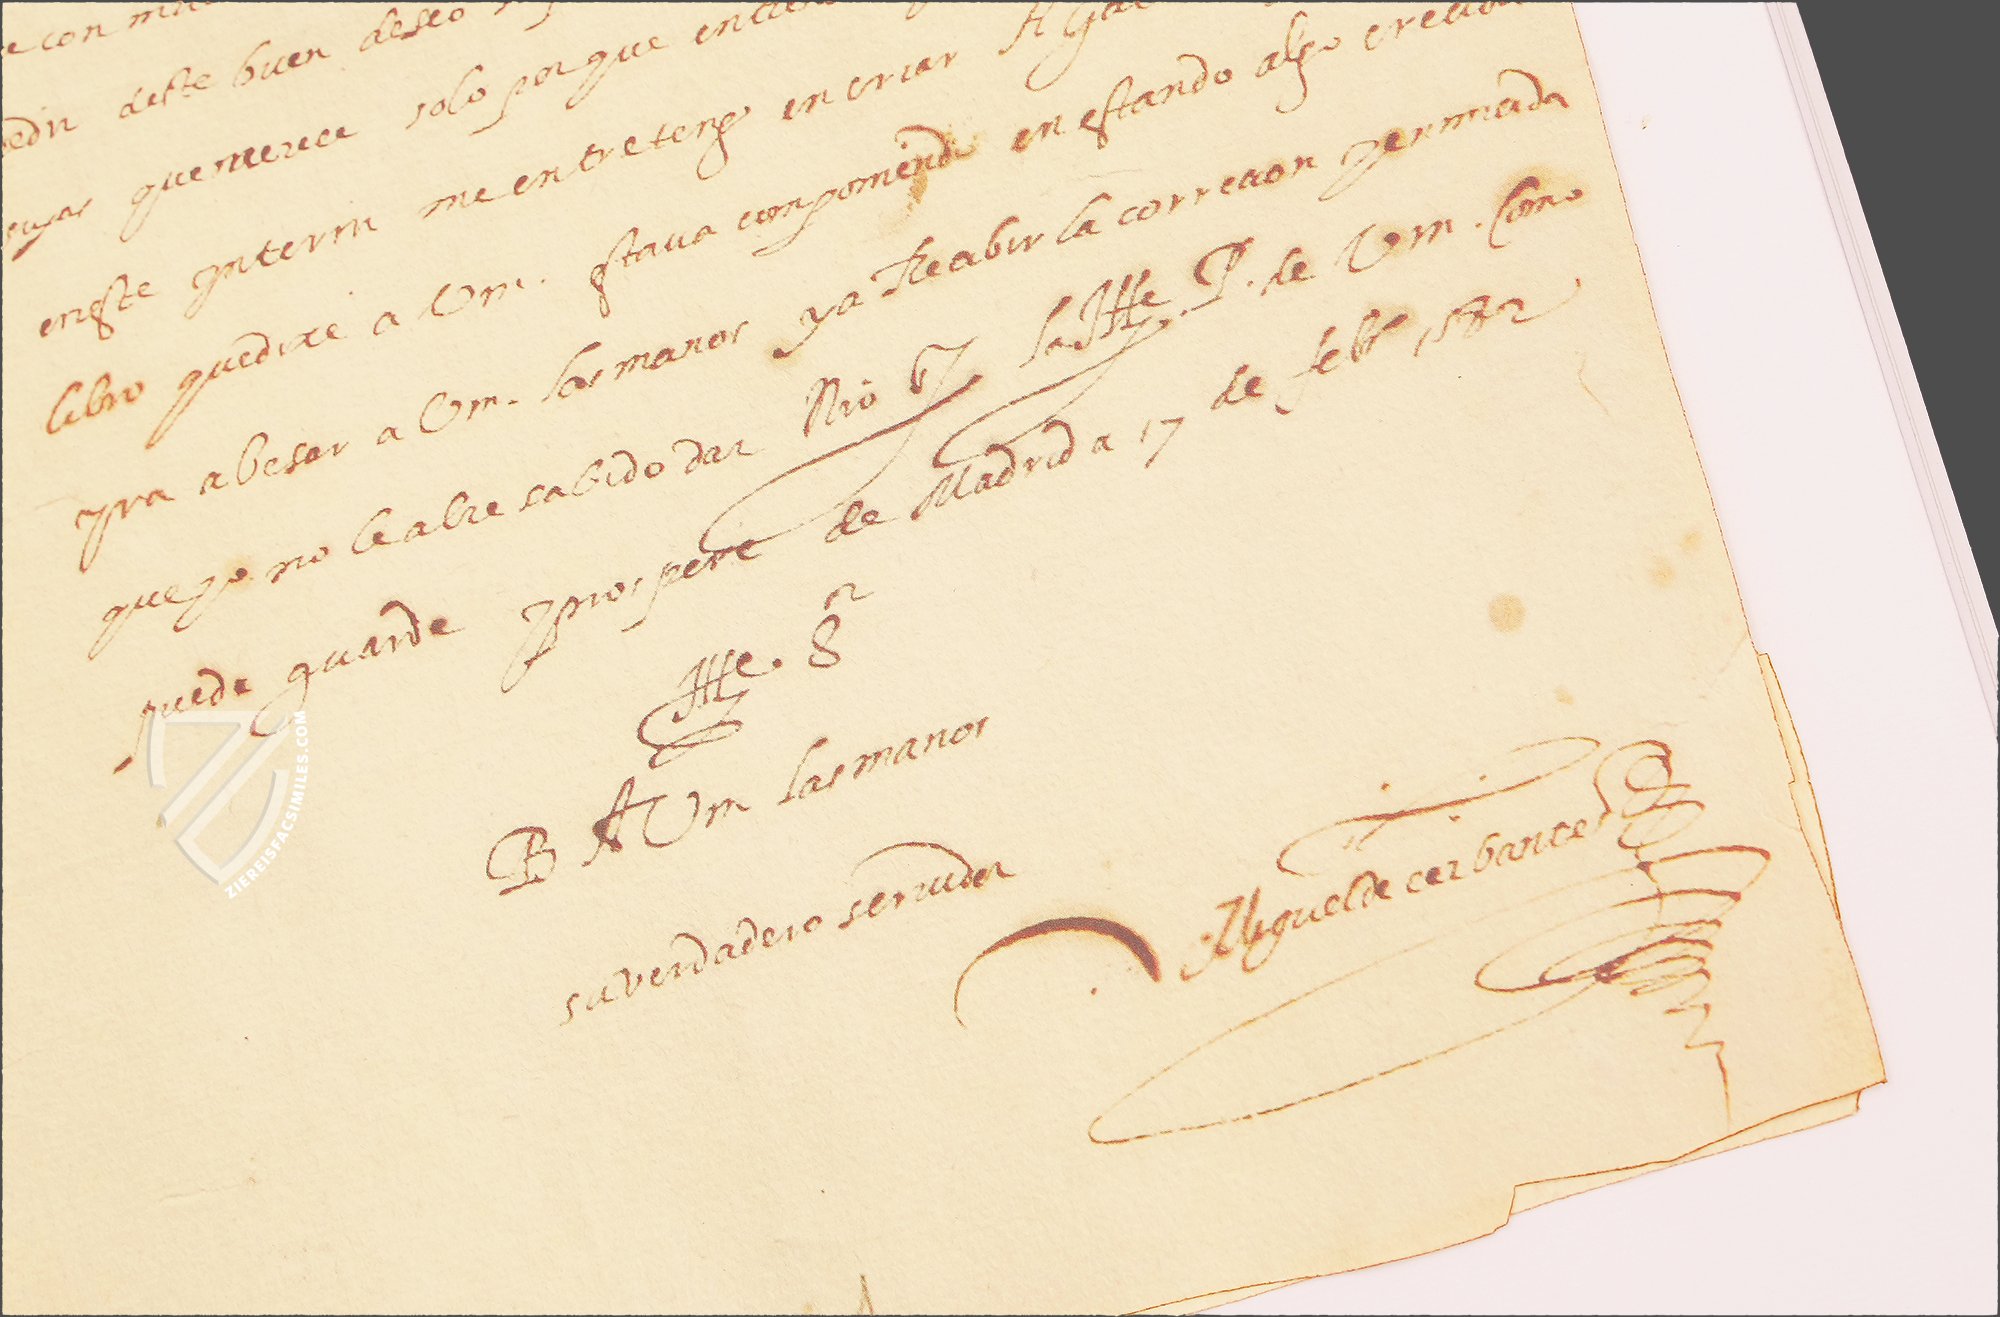 e con
pedir deste buen deseo
que merece solo porque
eneste ynterin me entretengo en criar A
libro que dixe a Vm. estaua componiendo en estando algo crecida
yra a besar a Vm. las manos y a Recibir la correcion y enmienda
que yo no le abre sabido dar Nro Sr la Ille P. de Vm. como
puede guarde y prospere de Madrid a 17 de febro 1582
Ille. Sr
B A Vm las manos
su verdadero seruidor
Miguel de cerbantes
ZIEREISFACSIMILES.COM